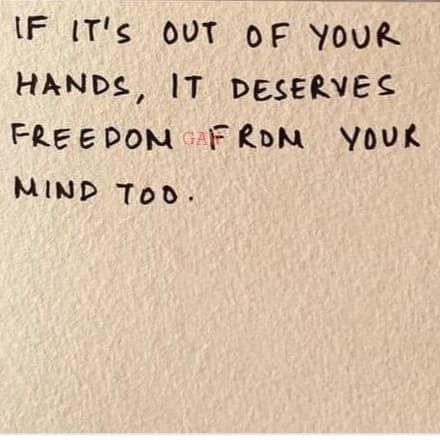 IF IT'S OUT OF YOUR
HANDS, IT DESERVES
FREEDOM FROM YOUR
MIND TOO.